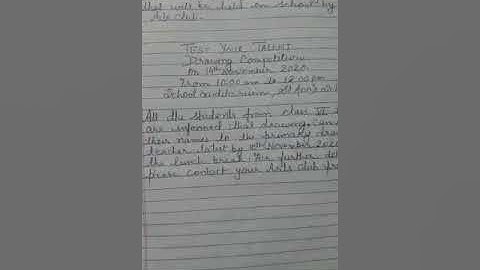 that will be held on school by
Arts club.
TEST YOUR TALENT
Drawing Competition
On 14th November 2020
From 10:00 am to 12:00 pm
School auditorium, St Ann's
All the students from class VI
are informed that drawing can
their names to the primary
teacher latest by 10th November 2020
the lunch break. For further
please contact your Arts club